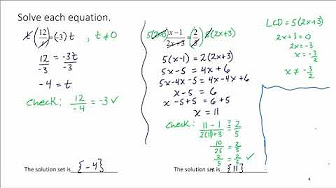 Solve each equation.
t(12/t) = (-3)t , t ≠ 0
12/-3 = -3t/-3
-4 = t
check: 12/-4 = -3 ✓
The solution set is {-4}.
5(2x+3) x-1/2x+3 = 2/5 5(2x+3)
5(x-1) = 2(2x+3)
5x-5 = 4x+6
5x-4x-5 = 4x-4x+6
x-5 = 6
x-5+5 = 6+5
x = 11
Check: 11-1/2(11)+3 ≟ 2/5
10/25 ≟ 2/5
2/5 = 2/5 ✓
The solution set is {11}.
LCD = 5(2x+3)
2x+3=0
2x=-3
x=-3/2
x ≠ -3/2